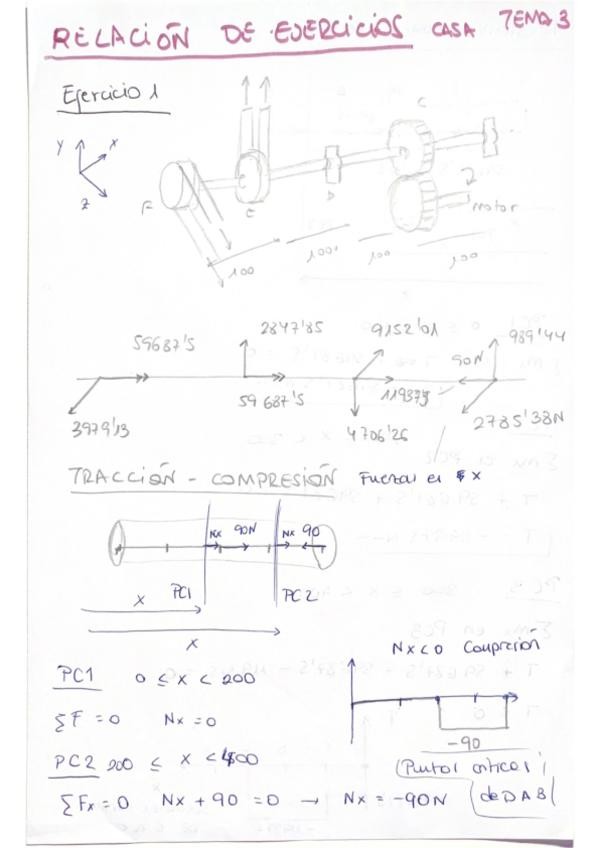 RELACIÓN DE EJERCICIOS CASA TEMA 3
Ejercicio 1
Y X
Z
F
E
D
C
2
motor
100 100 100 100
59687'5 2847'85 9152'01 989'44
90N
59 687'5 119375
3979'13 4706'26 2785'38N
TRACCIÓN - COMPRESIÓN Fuerzas en X
Nx 90N Nx 90
X PC1 PC2
X
Nx<0 Compresión
PC1 0 ≤ x < 200
ΣF = 0 Nx = 0
-90
PC2 200 ≤ x < 400
Puntos críticos
ΣFx = 0 Nx + 90 = 0 → Nx = -90N
de D A B